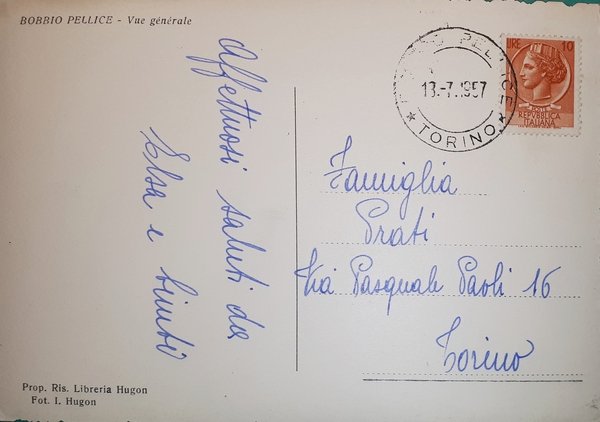 BOBBIO PELLICE - Vue générale
Affettuosi saluti da
Elsa e
BOBBIO PELLICE
13-7.1957
* TORINO *
LIRE 10
POSTE
REPVBBLICA
ITALIANA
Famiglia
Prati
Via Pasquale Paoli 16
Torino
Prop. Ris. Libreria Hugon
Fot. I. Hugon